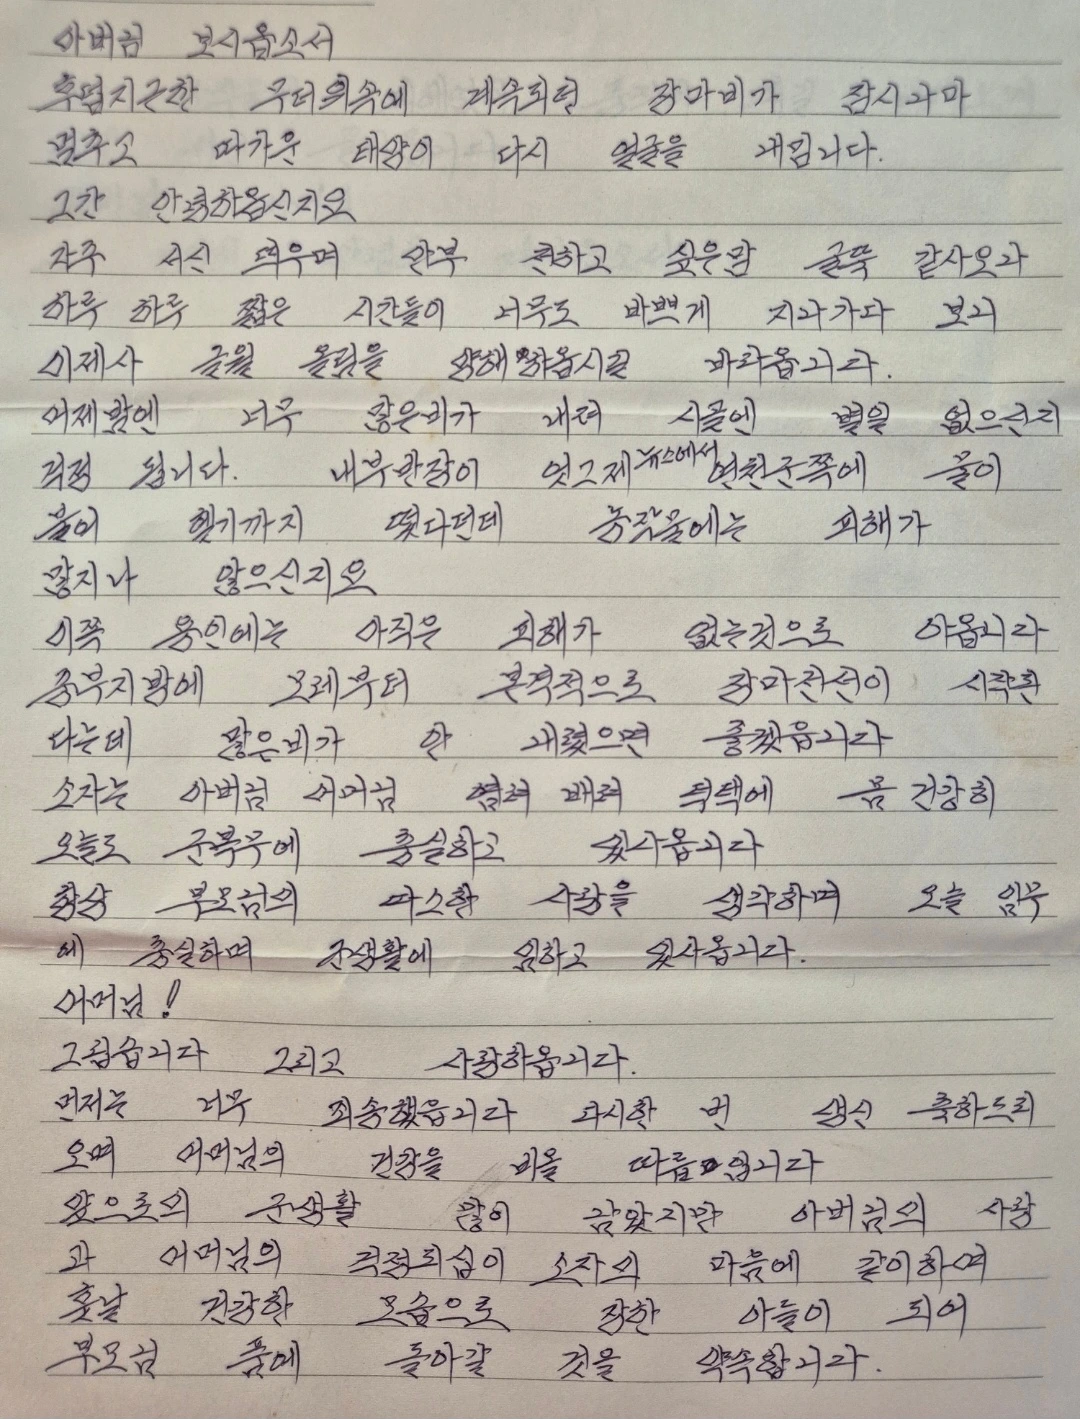 아버님 보시옵소서
후덥지근한 무더위속에 계속되던 장마비가 잠시나마
멈추고 따가운 태양이 다시 얼굴을 내밉니다.
그간 안녕하옵신지요
자주 서신 띄우며 안부 전하고 싶은맘 굴뚝 같사오나
하루 하루 짧은 시간들이 너무도 바쁘게 지나가다 보니
이제사 글월 올림을 양해 하옵시길 바라옵니다.
어제밤엔 너무 많은비가 내려 시골엔 별일 없으신지
걱정 됩니다. 내부반장이 엇그제 뉴스에서 연천군쪽에 물이
불어 헬기까지 떳다던데 농작물에는 피해가
많지나 않으신지요
이쪽 용인에는 아직은 피해가 없는것으로 아옵니다
중부지방에 모레부터 본격적으로 장마전선이 시작한
다는데 많은비가 안 내렸으면 좋겠읍니다
소자는 아버님 어머님 염려 배려 덕택에 몸 건강히
오늘도 군복무에 충실하고 있사옵니다
항상 부모님의 따스한 사랑을 생각하며 오늘 임무
에 충실하며 군생활에 임하고 있사옵니다.
어머님!
그립습니다 그리고 사랑하옵니다.
먼저는 너무 죄송했읍니다 다시한 번 생신 축하드리
오며 어머님의 건강을 비올 따름입니다
앞으로의 군생활 많이 남았지만 아버님의 사랑
과 어머님의 걱정되심이 소자의 마음에 같이하여
훗날 건강한 모습으로 장한 아들이 되어
부모님 품에 돌아갈 것을 약속합니다.